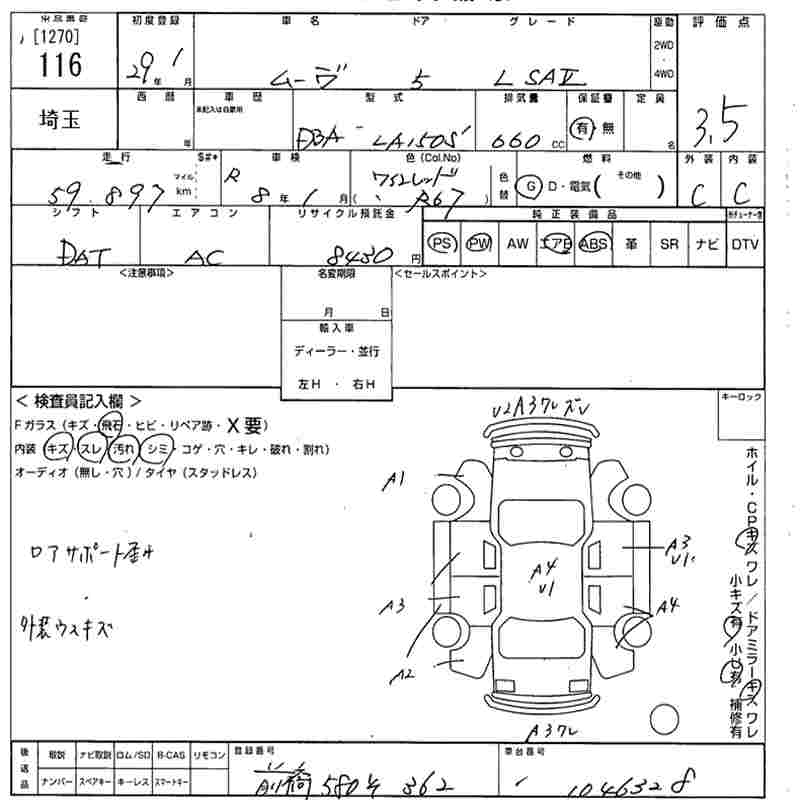 [1270]
116
埼玉
初度登録 車名 ドア グレード 駆動 評価点
29年 1月 ムーヴ 5 L SAⅡ 2WD・4WD
3.5
西暦 車歴 型式 排気量 保証書 定員
年 未記入は自家用 DBA-LA150S 660cc 有 無 名
走行 マイル km S#* 車検 色 (Col.No) 色替 燃料 外装 内装
59.897 R 8年 1月 ( R67 ) G D・電気( その他 ) C C
シフト エアコン リサイクル預託金 純正装備品
DAT AC 8430円 PS PW AW エアB ABS 革 SR ナビ DTV
<注意事項> 名変期限 <セールスポイント>
月 日
輸入車
ディーラー・並行
左H ・ 右H
<検査員記入欄> キーロック
Fガラス (キズ・飛石・ヒビ・リペア跡・X要)
内装 (キズ・スレ・汚れ・シミ・コゲ・穴・キレ・破れ・割れ)
オーディオ (無し・穴) / タイヤ (スタッドレス)
ロアサポート歪み
外装ウスキズ
U2A3ワレズレ
A1
A3
U1
A4
U1
A3
A4
A2
A3ワレ
ホイル・CPキズ ワレ / ドアミラーキズ ワレ
小キズ有 小U有 補修有
後送品 取説 ナビ取説 ロム/SD B-CAS リモコン 登録番号 車台番号
ナンバー スペアキー キーレス スマートキー 前橋 580 362 1046328